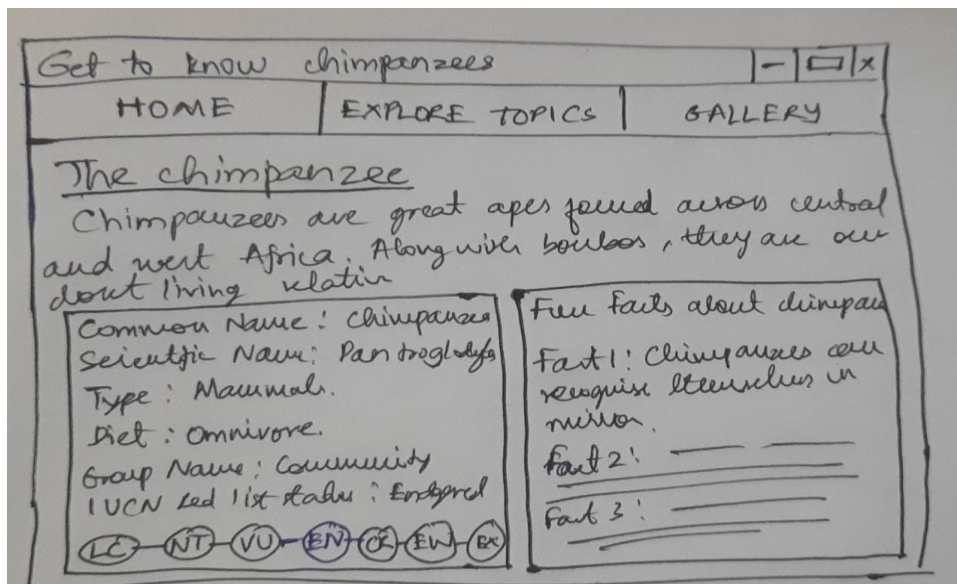 Get to know chimpanzees
HOME EXPLORE TOPICS GALLERY
The chimpanzee
Chimpanzees are great apes found across central
and west Africa. Along with bonobos, they are our
closest living relative
Common Name: Chimpanzee
Scientific Name: Pan troglodytes
Type: Mammals.
Diet: Omnivore.
Group Name: Community
IUCN Red list status: Endgered
LC NT VU EN CR EW EX
Fun facts about chimpan
Fact 1: Chimpanzees can
recognise themselves in
mirror.
Fact 2:
Fact 3: